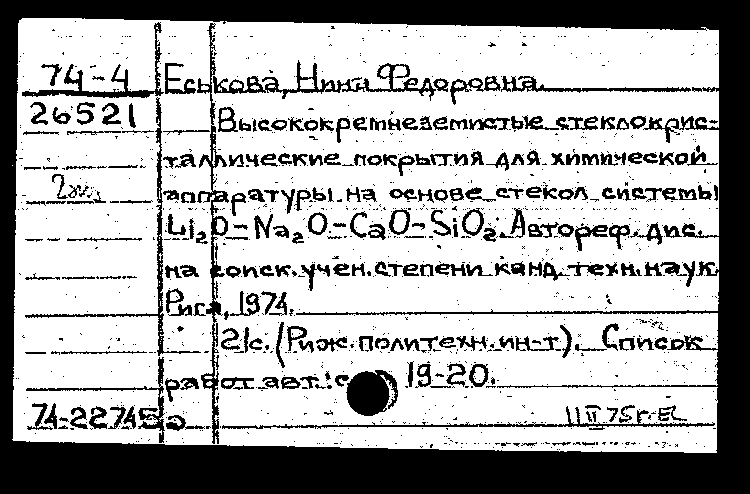 74-4 Еськова, Нина Федоровна.
26521 Высококремнеземистые стеклокрис-
таллические покрытия для химической
2экз аппаратуры на основе стекол системы
Li₂O-Na₂O-CaO-SiO₂. Автореф. дис.
на соиск. учен. степени канд. техн. наук.
Рига, 1974.
21с. (Риж. политехн. ин-т). Список
работ авт.: с. 19-20.
74-22745 11 II 75г.